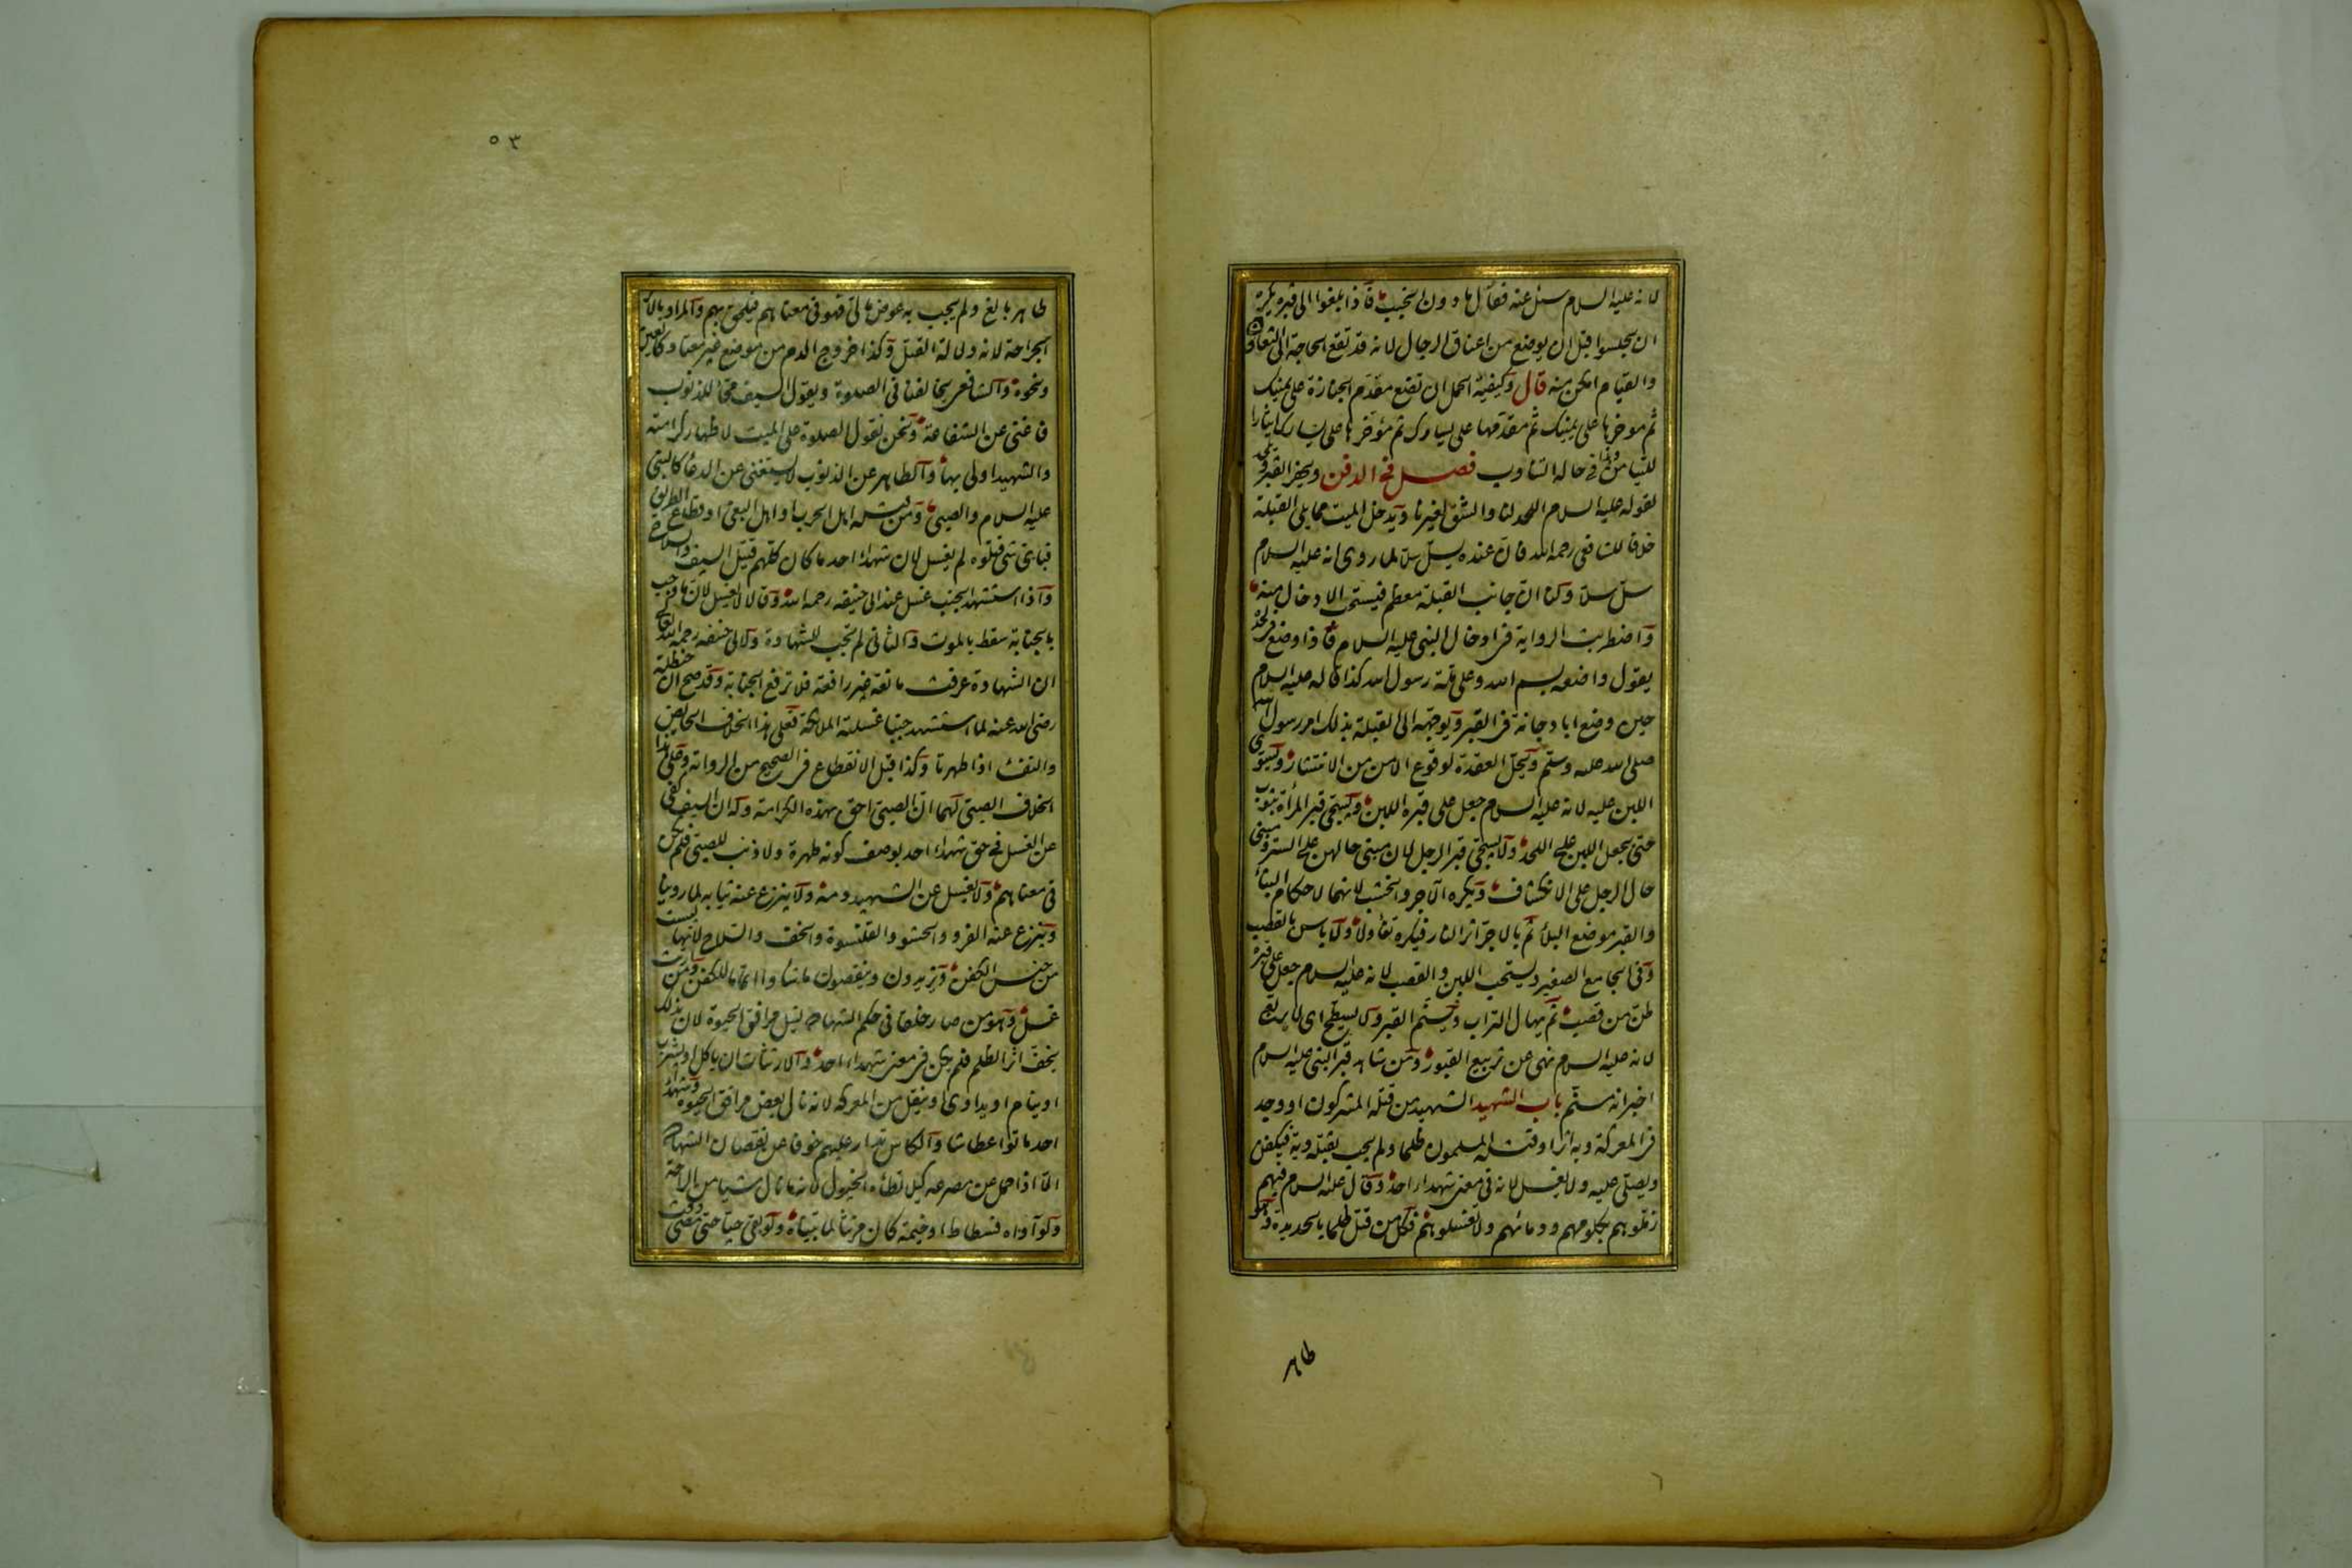 لانه عليه السلام سئل عنه فقال ما دون الخبب فاذا بلغوا الى قبره يكره
ان يجلسوا قبل ان يوضع من اعناق الرجال لانه قد تقع الحاجة الى التعاون
والقيام امكن منه قال وكيفية الحمل ان تضع مقدم الجنازة على يمينك
ثم مؤخرها على يمينك ثم مقدمها على يسارك ثم مؤخرها على يسارك ايثارا
للتيامن وهذا في حالة التناوب فصل في الدفن ويحفر القبر ويلحد
لقوله عليه السلام اللحد لنا والشق لغيرنا ويدخل الميت مما يلي القبلة
خلافا للشافعي رحمه الله فان عنده يسل سلا لما روى انه عليه السلام
سل سلا ولنا ان جانب القبلة معظم فيستحب الادخال منه
واضطربت الرواية في ادخال النبي عليه السلام فاذا وضع في لحده
يقول واضعه بسم الله وعلى ملة رسول الله كذا قاله عليه السلام
حين وضع ابا دجانة في القبر ويوجه الى القبلة بذلك امر رسول الله
صلى الله عليه وسلم ويحل العقدة لوقوع الامن من الانتشار ويسوى
اللبن عليه لانه عليه السلام جعل على قبره اللبن ويسجى قبر المرأة بثوب
حتى يجعل اللبن على اللحد ولا يسجى قبر الرجل لان مبنى حالهن على الستر ومبنى
حال الرجل على الانكشاف ويكره الآجر والخشب لانهما لاحكام البناء
والقبر موضع البلاء ثم بالآجر اثر النار فيكره تفاؤلا ولا باس بالقصب
وفي الجامع الصغير ويستحب اللبن والقصب لانه عليه السلام جعل على قبره
طن من قصب ثم يهال التراب ويسنم القبر ولا يسطح اى لا يربع
لانه عليه السلام نهى عن تربيع القبور ومن شاهد قبر النبي عليه السلام
اخبر انه مسنم باب الشهيد الشهيد من قتله المشركون او وجد
في المعركة وبه اثر او قتله المسلمون ظلما ولم يجب بقتله دية فيكفن
ويصلى عليه ولا يغسل لانه في معنى شهداء احد وقال عليه السلام فيهم
زملوهم بكلومهم ودمائهم ولا تغسلوهم فكل من قتل ظلما بالحديدة وهو
طاهر
٥٣
طاهر بالغ ولم يجب به عوض مالي فهو في معناهم فيلحق بهم والمراد بالاثر
الجراحة لانه دلالة القتل وكذا خروج الدم من موضع غير معتاد كالعين
ونحوه والشافعي يخالفنا في الصلوة ويقول السيف محاء للذنوب
فاغنى عن الشفاعة ونحن نقول الصلوة على الميت لاظهار كرامته
والشهيد اولى بها والطاهر عن الذنوب لا يستغنى عن الدعاء كالنبي
عليه السلام والصبي ومن قتله اهل الحرب او اهل البغي او قطاع الطريق
فباى شئ قتلوه لم يغسل لان شهداء احد ما كان كلهم قتيل السيف والسلاح
واذا استشهد الجنب غسل عند ابى حنيفه رحمه الله وقالا لا يغسل لان ما وجب
بالجنابة سقط بالموت والثانى لم يجب للشهادة ولابى حنيفه رحمه الله
ان الشهادة عرفت مانعة غير رافعة فلا ترفع الجنابة وقد صح ان حنظلة
رضى الله عنه لما استشهد جنبا غسلته الملائكة فعلى هذا الخلاف الحائض
والنفساء اذا طهرتا وكذا قبل الانقطاع في الصحيح من الرواية وعلى هذا
الخلاف الصبي لهما ان الصبي احق بهذه الكرامة وله ان السيف كفى
عن الغسل في حق شهداء احد بوصف كونه طهرة ولا ذنب للصبي فلم يكن
في معناهم ولا يغسل عن الشهيد دمه ولا ينزع عنه ثيابه لما روينا
وينزع عنه الفرو والحشو والقلنسوة والخف والسلاح لانها ليست
من جنس الكفن ويزيدون وينقصون ما شاءوا اتماما للكفن ومن ارتث
غسل وهو من صار خلقا في حكم الشهادة لنيل مرافق الحيوة لان بذلك
يخف اثر الظلم فلم يكن في معنى شهداء احد والارتثاث ان ياكل او يشرب
او ينام او يداوى او ينقل من المعركه لانه نال بعض مرافق الحيوة وشهداء
احد ماتوا عطاشا والكاس تدار عليهم خوفا من نقصان الشهادة
الا اذا حمل عن مصرعه كيلا تطأه الخيول لانه ما نال شيأ من الراحة
ولو آواه فسطاط او خيمة كان مرتثا لما بيناه ولو بقى حيا حتى مضى وقت